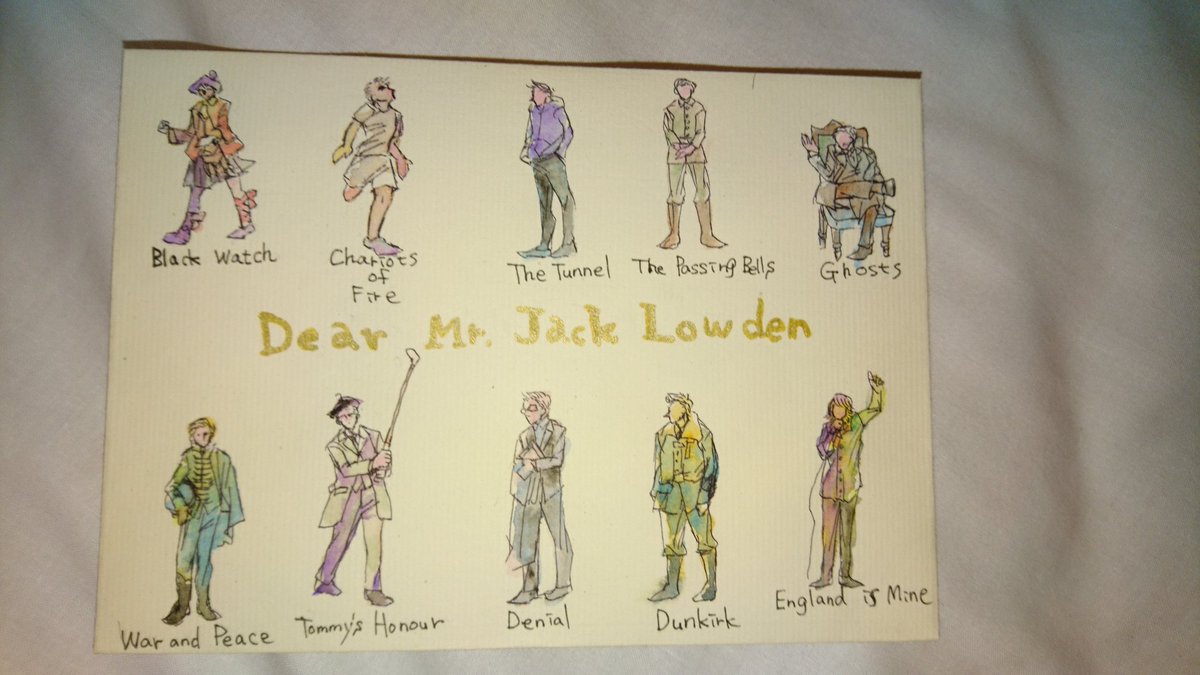 Black Watch
Chariots
of
Fire
The Tunnel
The Passing Bells
Ghosts
Dear Mr. Jack Lowden
War and Peace
Tommy's Honour
Denial
Dunkirk
England is Mine